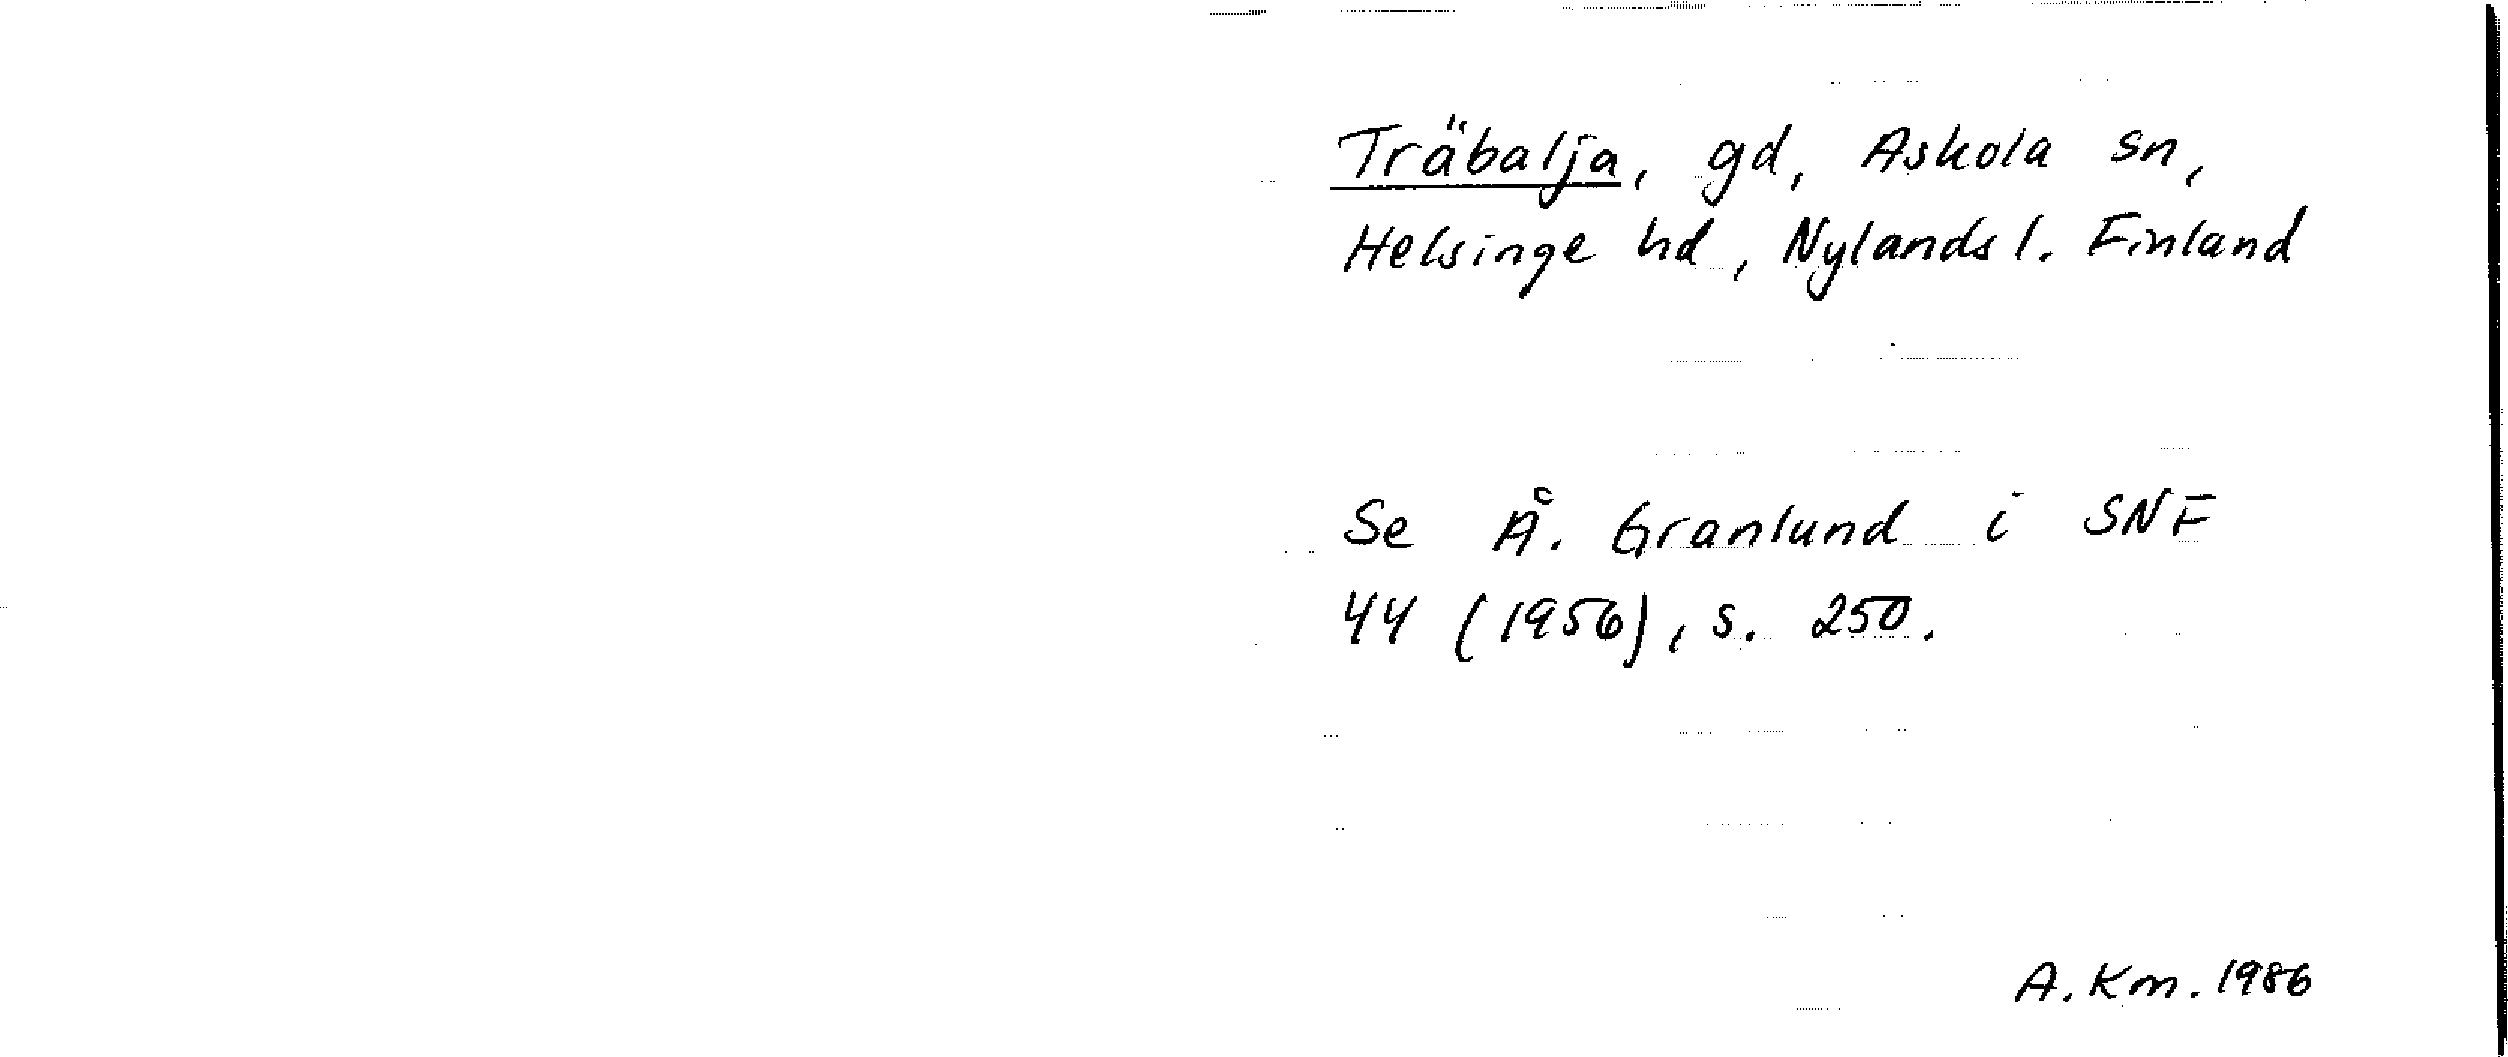 Träbalja, gd, Askola sn,
Helsinge hd, Nylands l. Finland
Se Å. Granlund i SNF
44 (1956), s. 250.
A. Km. 1986